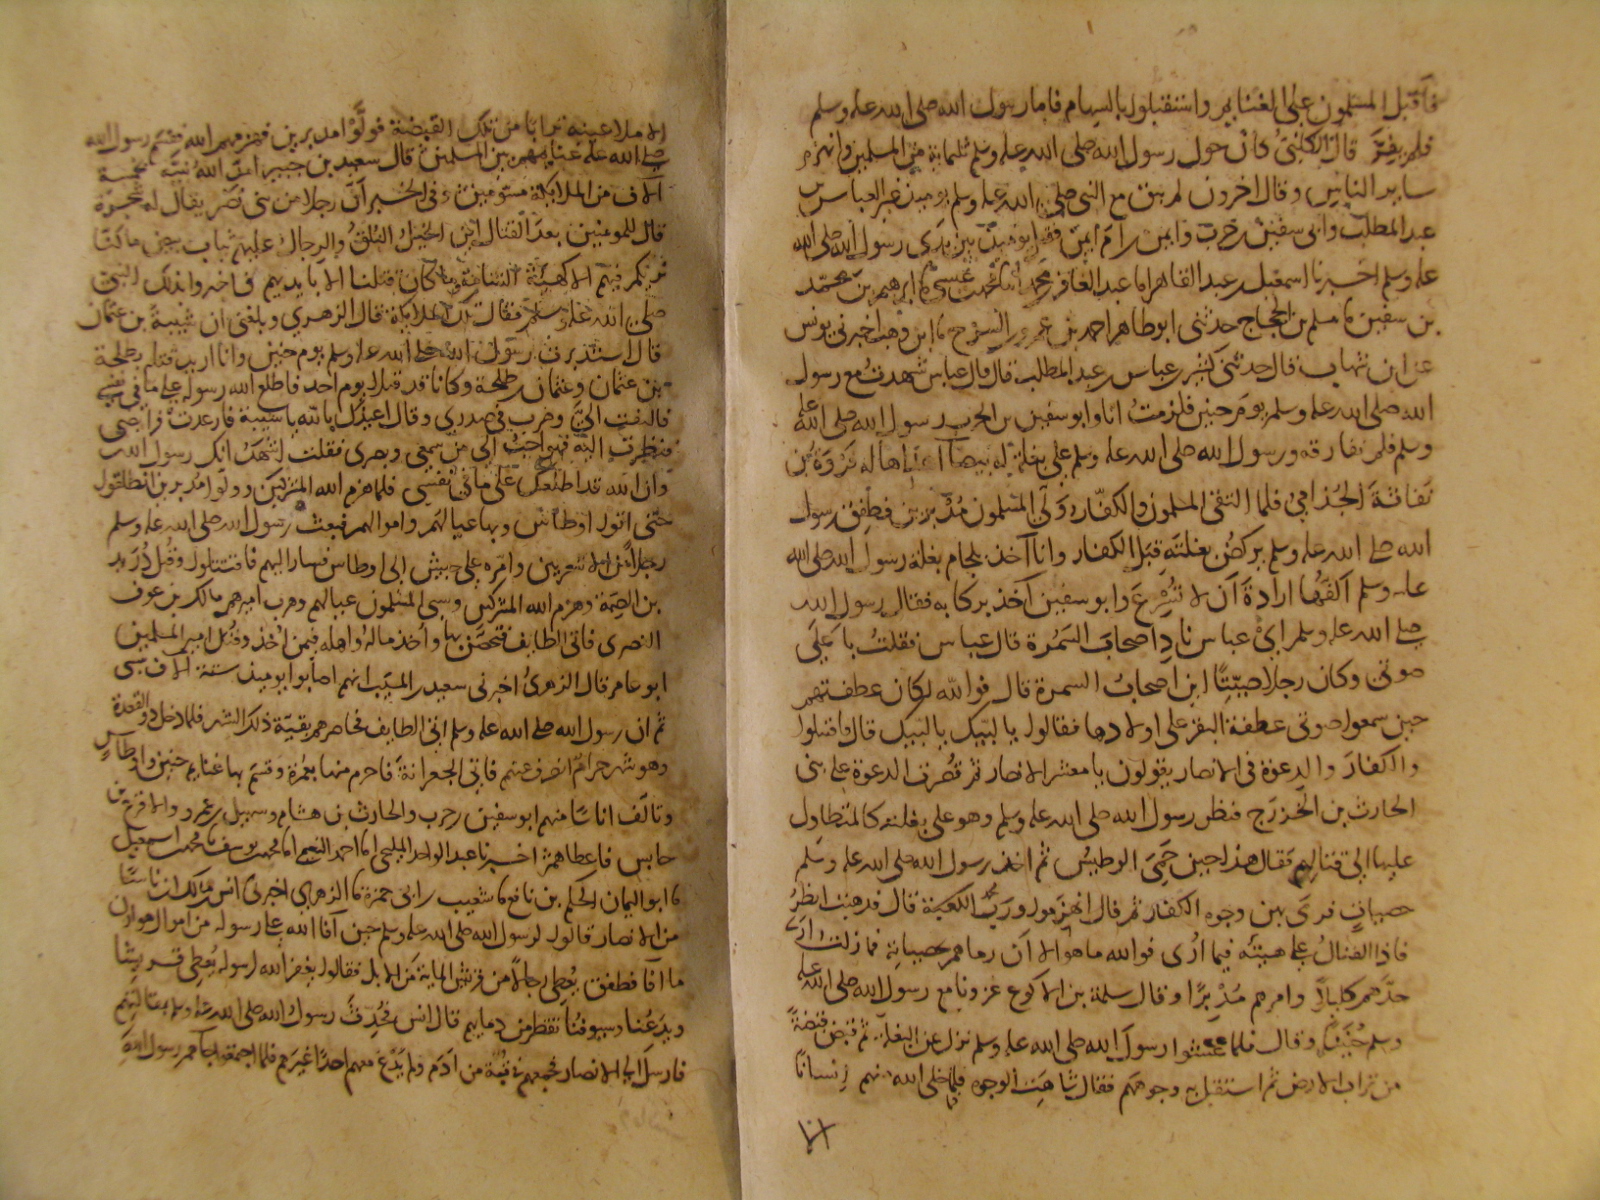 فاقبل المسلمون على الغنائم واستقبلوا بالسهام فاما رسول الله صلى الله عليه وسلم
فلم يفر قال الكلبي كان حول رسول الله صلى الله عليه وسلم ثلثماية من المسلمين وانهزم
ساير الناس وقال اخرون لم يبق مع النبي صلى الله عليه وسلم يوميذ غير العباس بن
عبد المطلب وابي سفين بن حرب وايمن بن ام ايمن فقتل يوميذ بين يدي رسول الله صلى الله
عليه وسلم اخبرنا اسمعيل بن عبد القاهر انا عبد الغافر بن محمد انا محمد بن عيسى نا ابرهيم بن محمد
بن سفين نا مسلم بن الحجاج حدثني ابو طاهر احمد بن عمرو بن السرح نا ابن وهب اخبرني يونس
عن ابن شهاب قال حدثني كثير بن عباس بن عبد المطلب قال قال عباس شهدت مع رسول
الله صلى الله عليه وسلم يوم حنين فلزمت انا وابو سفين بن الحرب رسول الله صلى الله عليه
وسلم فلم نفارقه ورسول الله صلى الله عليه وسلم على بغلة له بيضا اهداها له فروة بن
نفاثة الجذامي فلما التقى المسلمون والكفار ولى المسلمون مدبرين فطفق رسول
الله صلى الله عليه وسلم يركض بغلته قبل الكفار وانا آخذ بلجام بغلة رسول الله صلى الله
عليه وسلم اكفها ارادة ان لا تسرع وابو سفين آخذ بركابه فقال رسول الله
صلى الله عليه وسلم اي عباس ناد اصحاب السمرة قال عباس فقلت باعلى
صوتي وكان رجلا صيتا اين اصحاب السمرة قال فوالله لكان عطفتهم
حين سمعوا صوتي عطفة البقر على اولادها فقالوا يا لبيك يا لبيك قال فاقتتلوا
والكفار والدعوة في الانصار يقولون يا معشر الانصار ثم قصرت الدعوة على بني
الحارث بن الخزرج فنظر رسول الله صلى الله عليه وسلم وهو على بغلته كالمتطاول
عليها الى قتالهم فقال هذا حين حمي الوطيس ثم اخذ رسول الله صلى الله عليه وسلم
حصيات فرمى بهن وجوه الكفار ثم قال انهزموا ورب الكعبة قال فذهبت انظر
فاذا القتال على هيئته فيما ارى فوالله ما هو الا ان رماهم بحصياته فما زلت ارى
حدهم كليلا وامرهم مدبرا وقال سلمة بن الاكوع غزونا مع رسول الله صلى الله عليه
وسلم حنينا وقال فلما غشوا رسول الله صلى الله عليه وسلم نزل عن البغلة ثم قبض قبضة
من تراب الارض ثم استقبل به وجوههم فقال شاهت الوجوه فما خلى الله منهم انسانا
الا ملا عينيه ترابا من تلك القبضة فولوا مدبرين فهزمهم الله فقسم رسول الله
صلى الله عليه غنايمهم بين المسلمين قال سعيد بن جبير امد الله نبيه بخمسة
آلاف من الملايكة مسومين وفي الخبر ان رجلا من بني نصر يقال له شجرة
قال للمومنين بعد القتال اين الخيل البلق والرجال عليهم ثياب بيض ما كنا
نريكم فيهم الا كهيئة الشامة وما كان قتلنا الا بايديهم فاخبروا بذلك النبي
صلى الله عليه وسلم فقال تلك الملايكة قال الزهري وبلغني ان شيبة بن عثمان
قال استدبرت رسول الله صلى الله عليه وسلم يوم حنين وانا اريد قتله بطلحة
بن عثمان وعثمان بن طلحة وكانا قد قتلا يوم احد فاطلع الله رسوله على ما في نفسي
فالتفت الي وضرب في صدري وقال اعيذك بالله يا شيبة فارعدت فرايصي
فنظرت اليه فهو احب الي من سمعي وبصري فقلت اشهد انك رسول الله
وان الله قد اطلعك على ما في نفسي فلما هزم الله المشركين وولوا مدبرين انطلقوا
حتى اتوا اوطاس وبها عيالهم واموالهم فبعث رسول الله صلى الله عليه وسلم
رجلا من الاشعريين وامره على جيش الى اوطاس فسار اليهم فاقتتلوا وقتل دريد
بن الصمة وهزم الله المشركين وسبى المسلمون عيالهم وهرب اميرهم مالك بن عوف
النصري فاتى الطايف فتحصن بها واخذ ماله واهله فيمن اخذ وقتل امير المسلمين
ابو عامر قال الزهري اخبرني سعيد بن المسيب انهم اصابوا يوميذ ستة آلاف سبي
ثم ان رسول الله صلى الله عليه وسلم اتى الطايف فحاصرهم بقية ذلك الشهر فلما دخل ذو القعدة
وهو شهر حرام انصرف عنهم فاتى الجعرانة فاحرم منها بعمرة وقسم بها غنايم حنين واوطاس
وتالف اناسا منهم ابو سفين بن حرب والحارث بن هشام وسهيل بن عمرو والاقرع بن
حابس فاعطاهم اخبرنا عبد الواحد المليحي انا احمد النعيمي انا محمد بن يوسف نا محمد بن اسمعيل
نا ابو اليمان الحكم بن نافع نا شعيب بن ابي حمزة نا الزهري اخبرني انس بن مالك ان ناسا
من الانصار قالوا لرسول الله صلى الله عليه وسلم حين آفا الله على رسوله من اموال هوازن
ما آفا فطفق يعطي رجالا من قريش الماية من الابل فقالوا يغفر الله لرسوله يعطي قريشا
ويدعنا وسيوفنا تقطر من دمايهم قال انس فحدث رسول الله صلى الله عليه وسلم بمقالتهم
فارسل الى الانصار فجمعهم في قبة من ادم ولم يدع معهم احدا غيرهم فلما اجتمعوا جاهم رسول الله